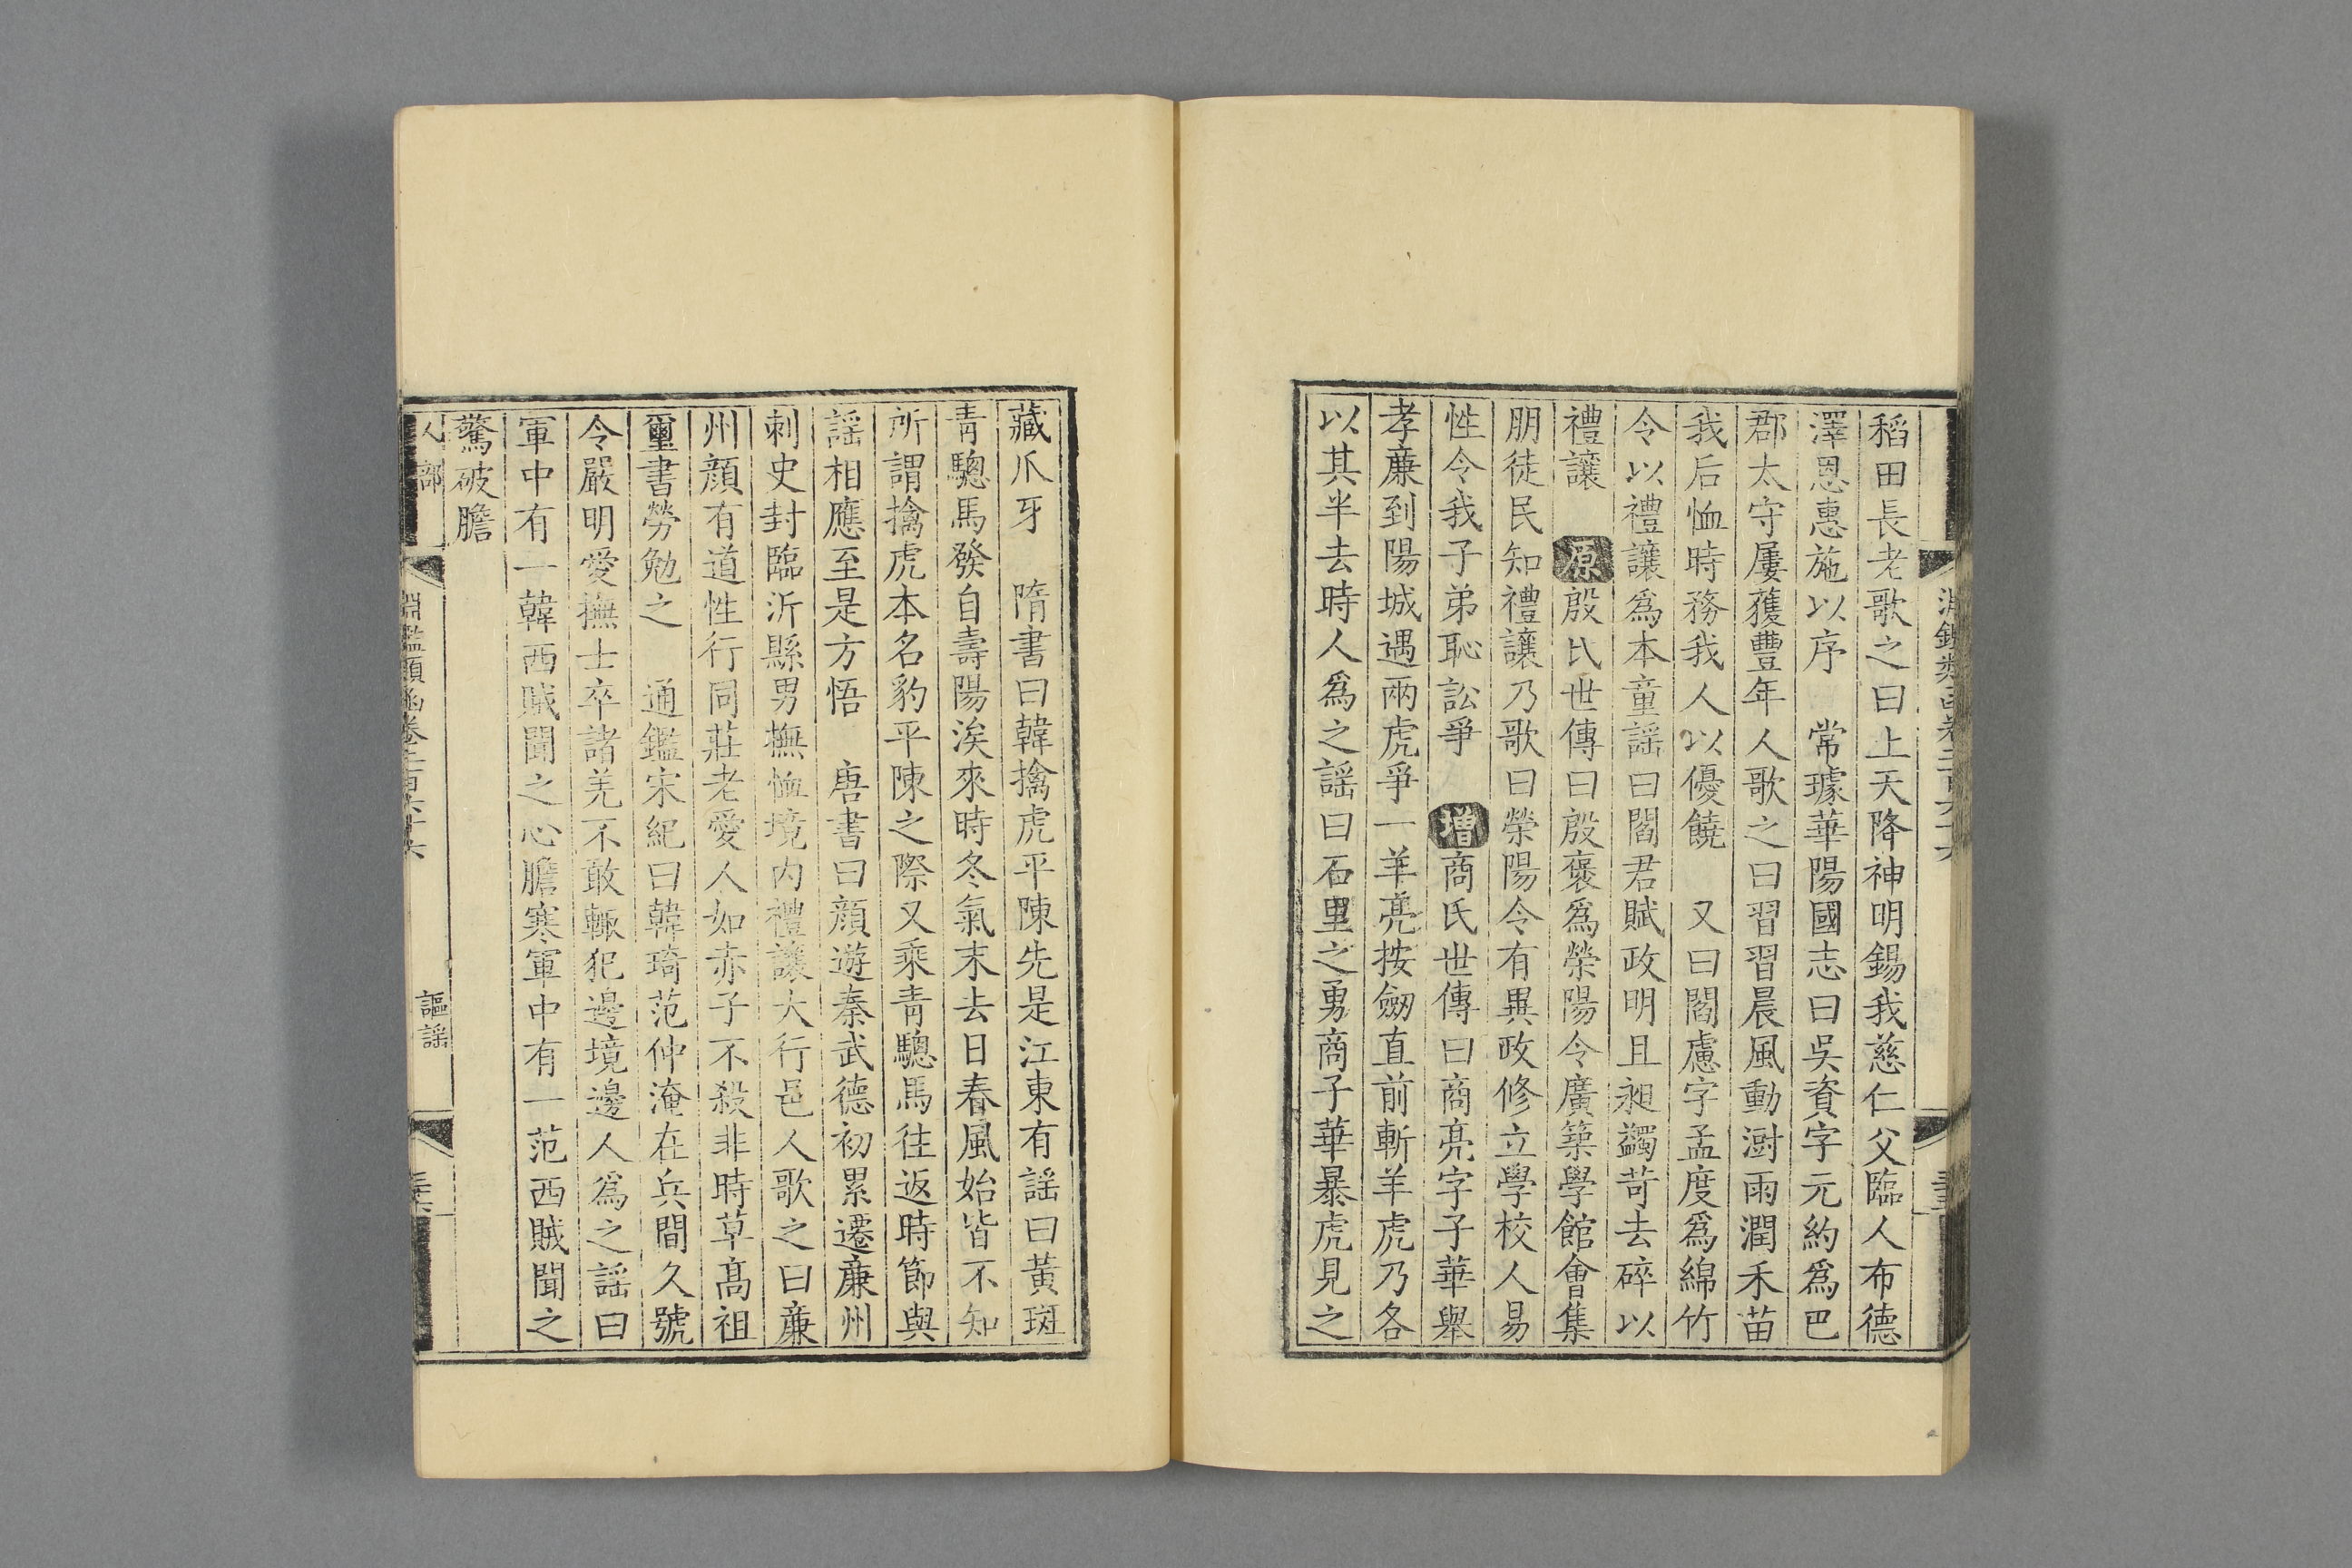 稻田長老歌之曰上天降神明錫我慈仁父臨人布德
澤恩惠施以序　常璩華陽國志曰吳資字元約爲巴
郡太守屢獲豐年人歌之曰習習晨風動澍雨潤禾苗
我后恤時務我人以優饒　又曰閻慮字孟度爲綿竹
令以禮讓爲本童謡曰閻君賦政明且昶蠲苛去碎以
禮讓　原殷氏世傳曰殷褒爲榮陽令廣築學館會集
朋徒民知禮讓乃歌曰榮陽令有異政修立學校人易
性令我子弟恥訟爭　增商氏世傳曰商亮字子華舉
孝廉到陽城遇兩虎爭一羊亮按劒直前斬羊虎乃各
以其半去時人爲之謡曰石里之勇商子華暴虎見之
藏爪牙　隋書曰韓擒虎平陳先是江東有謡曰黃斑
青驄馬發自壽陽涘來時冬氣末去日春風始皆不知
所謂擒虎本名豹平陳之際又乘青驄馬往返時節與
謡相應至是方悟　唐書曰顔遊秦武德初累遷廉州
刺史封臨沂縣男撫恤境内禮讓大行邑人歌之曰廉
州顔有道性行同莊老愛人如赤子不殺非時草髙祖
璽書勞勉之　通鑑宋紀曰韓琦范仲淹在兵間久號
令嚴明愛撫士卒諸羌不敢輒犯邊境邊人爲之謡曰
軍中有一韓西賊聞之心膽寒軍中有一范西賊聞之
驚破膽
人部　淵鑑類函卷二百六十六　謳謡